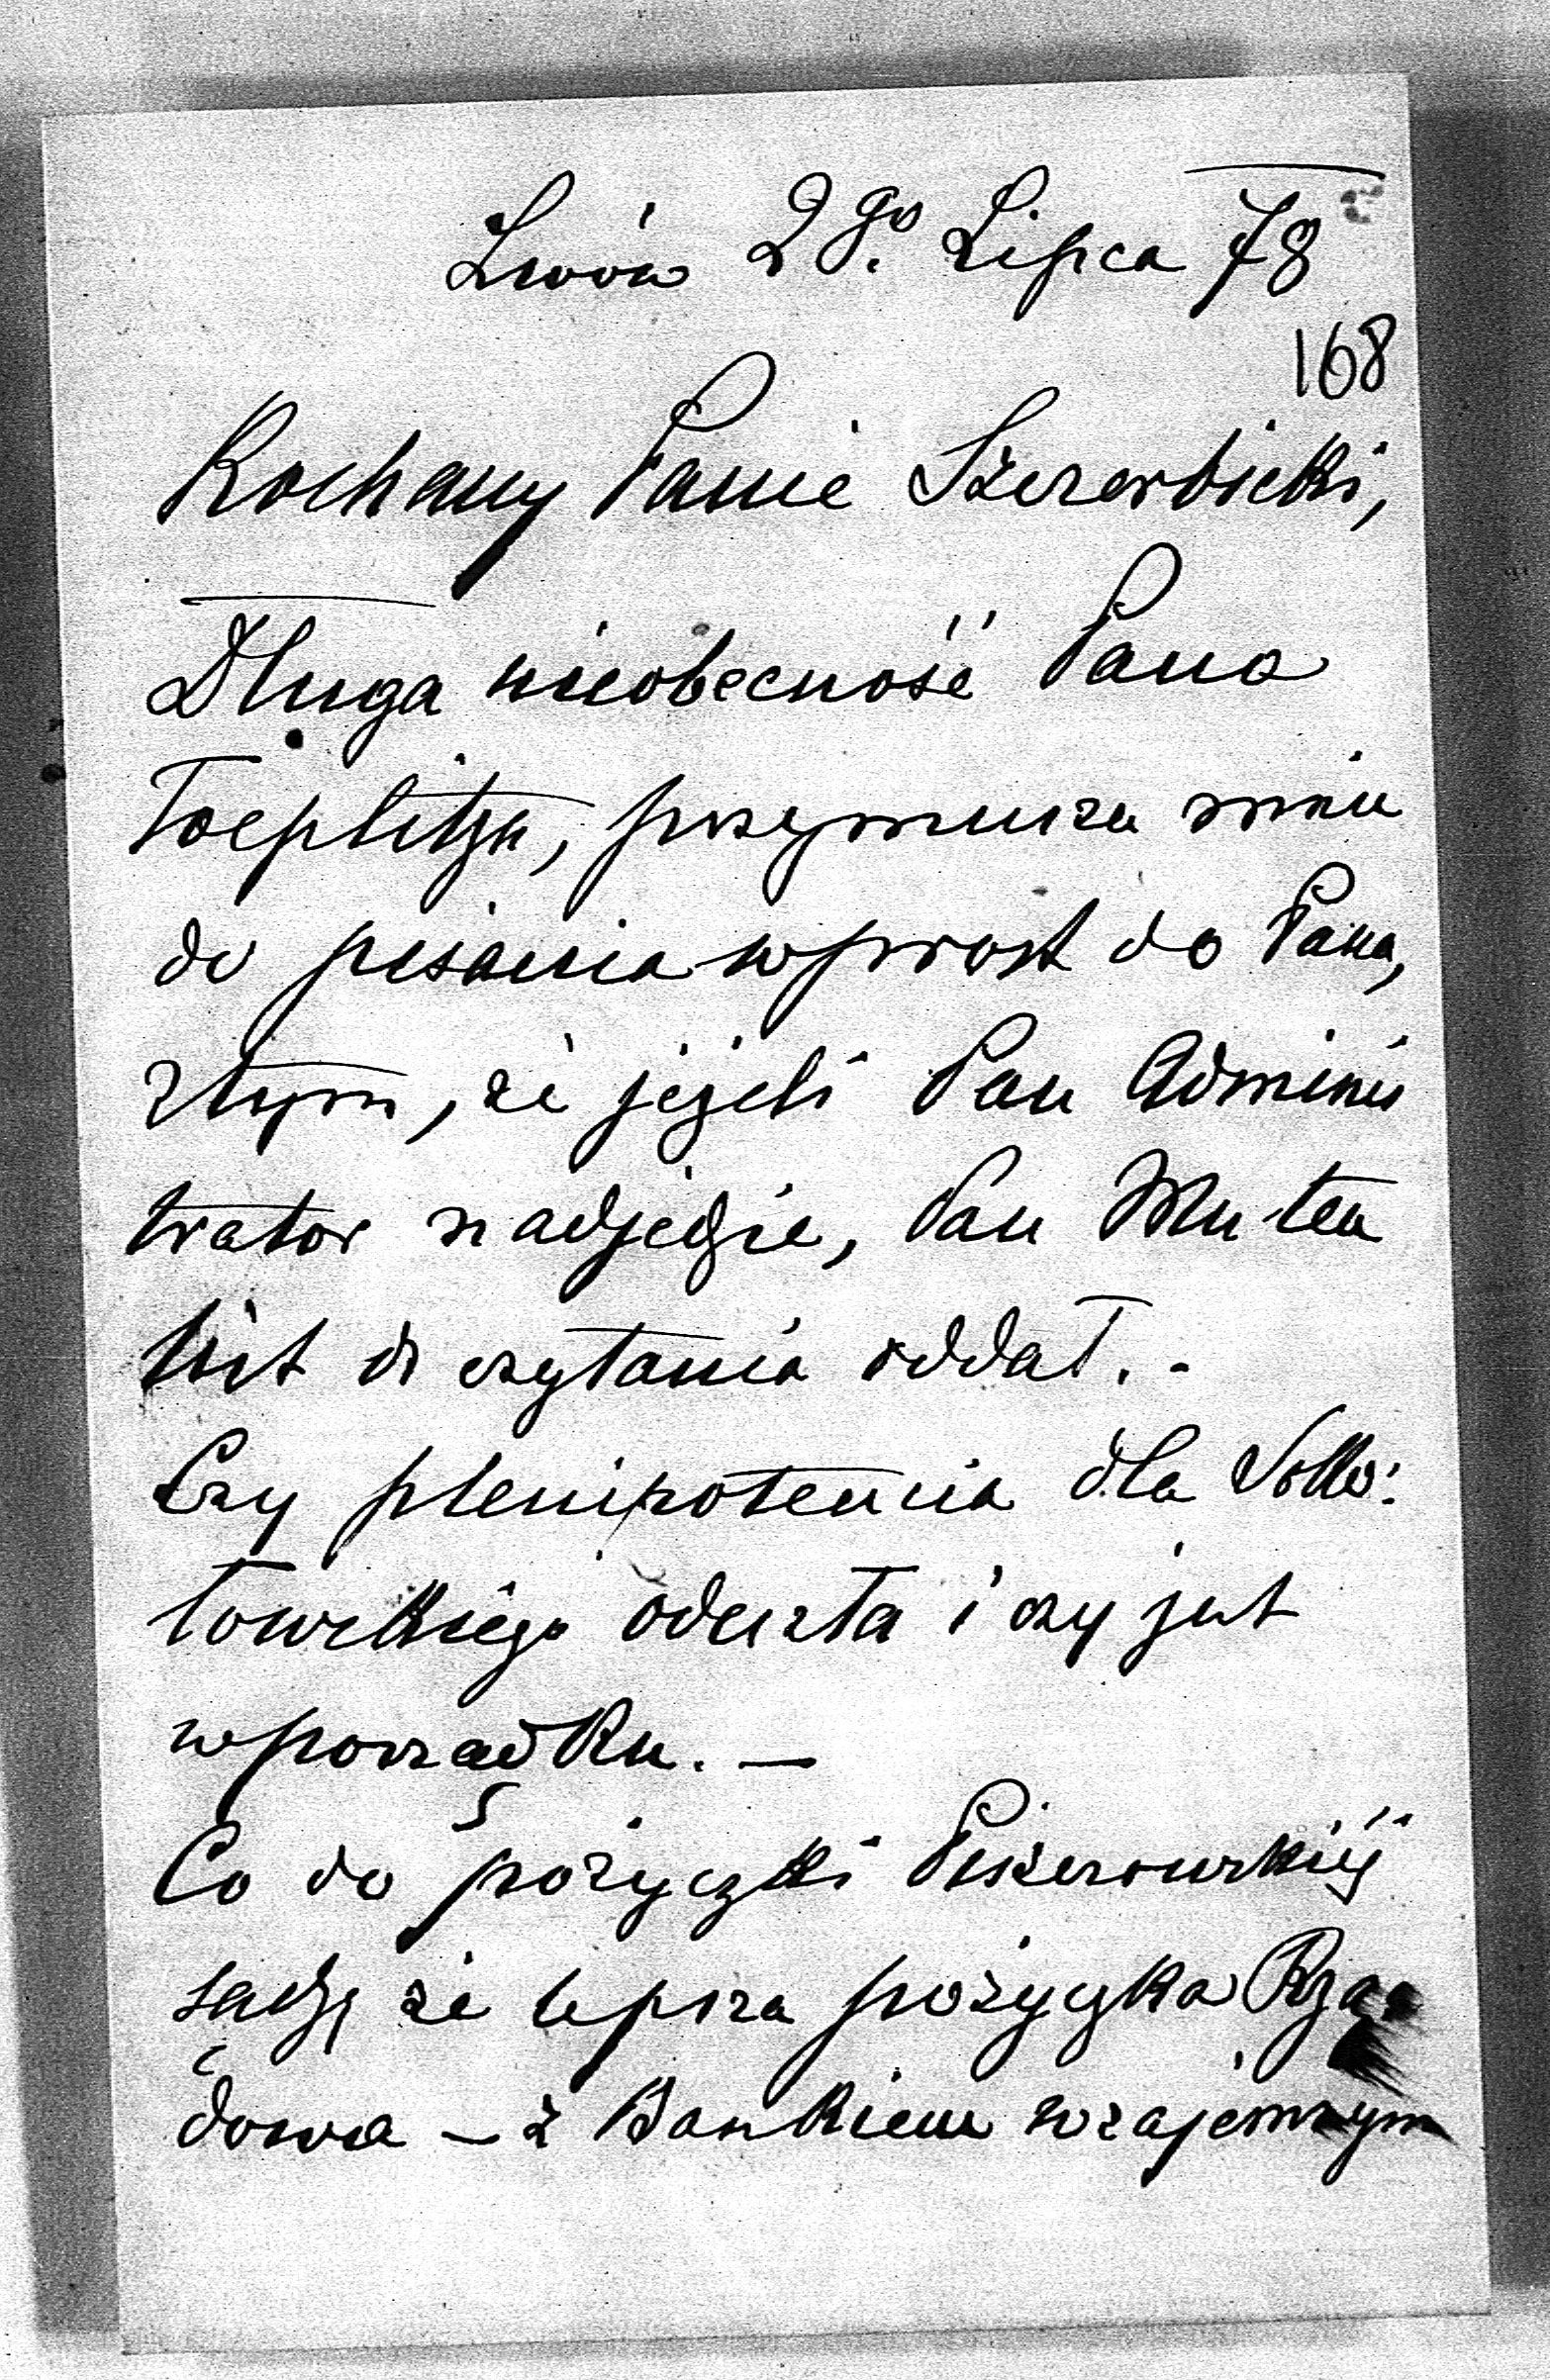 Lwów 2go. Lipca 78
168
Kochany Panie Szczerbicki,
Długa nieobecność Pana
Toeplitza, przymusza mnie
do pisania wprost do Pana,
ztym, że jeżeli Pan Adminis
trator nadjedzie, Pan Mu ten
list do czytania oddał. -
Czy plenipotencia dla
towskiego odeszła i czy jest
wporządku. —
Co do pożyczki
sądzę że lepsza pożyczka Rzą
dowa - z Bankiem wzajemnym